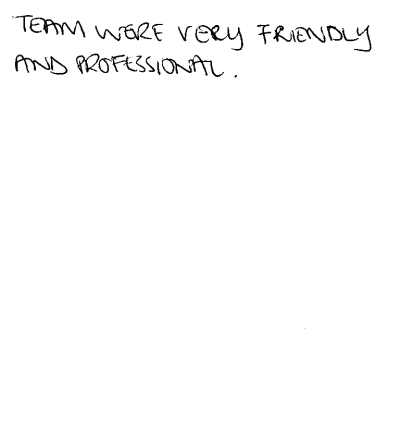 TEAM WERE VERY FRIENDLY
AND PROFESSIONAL.